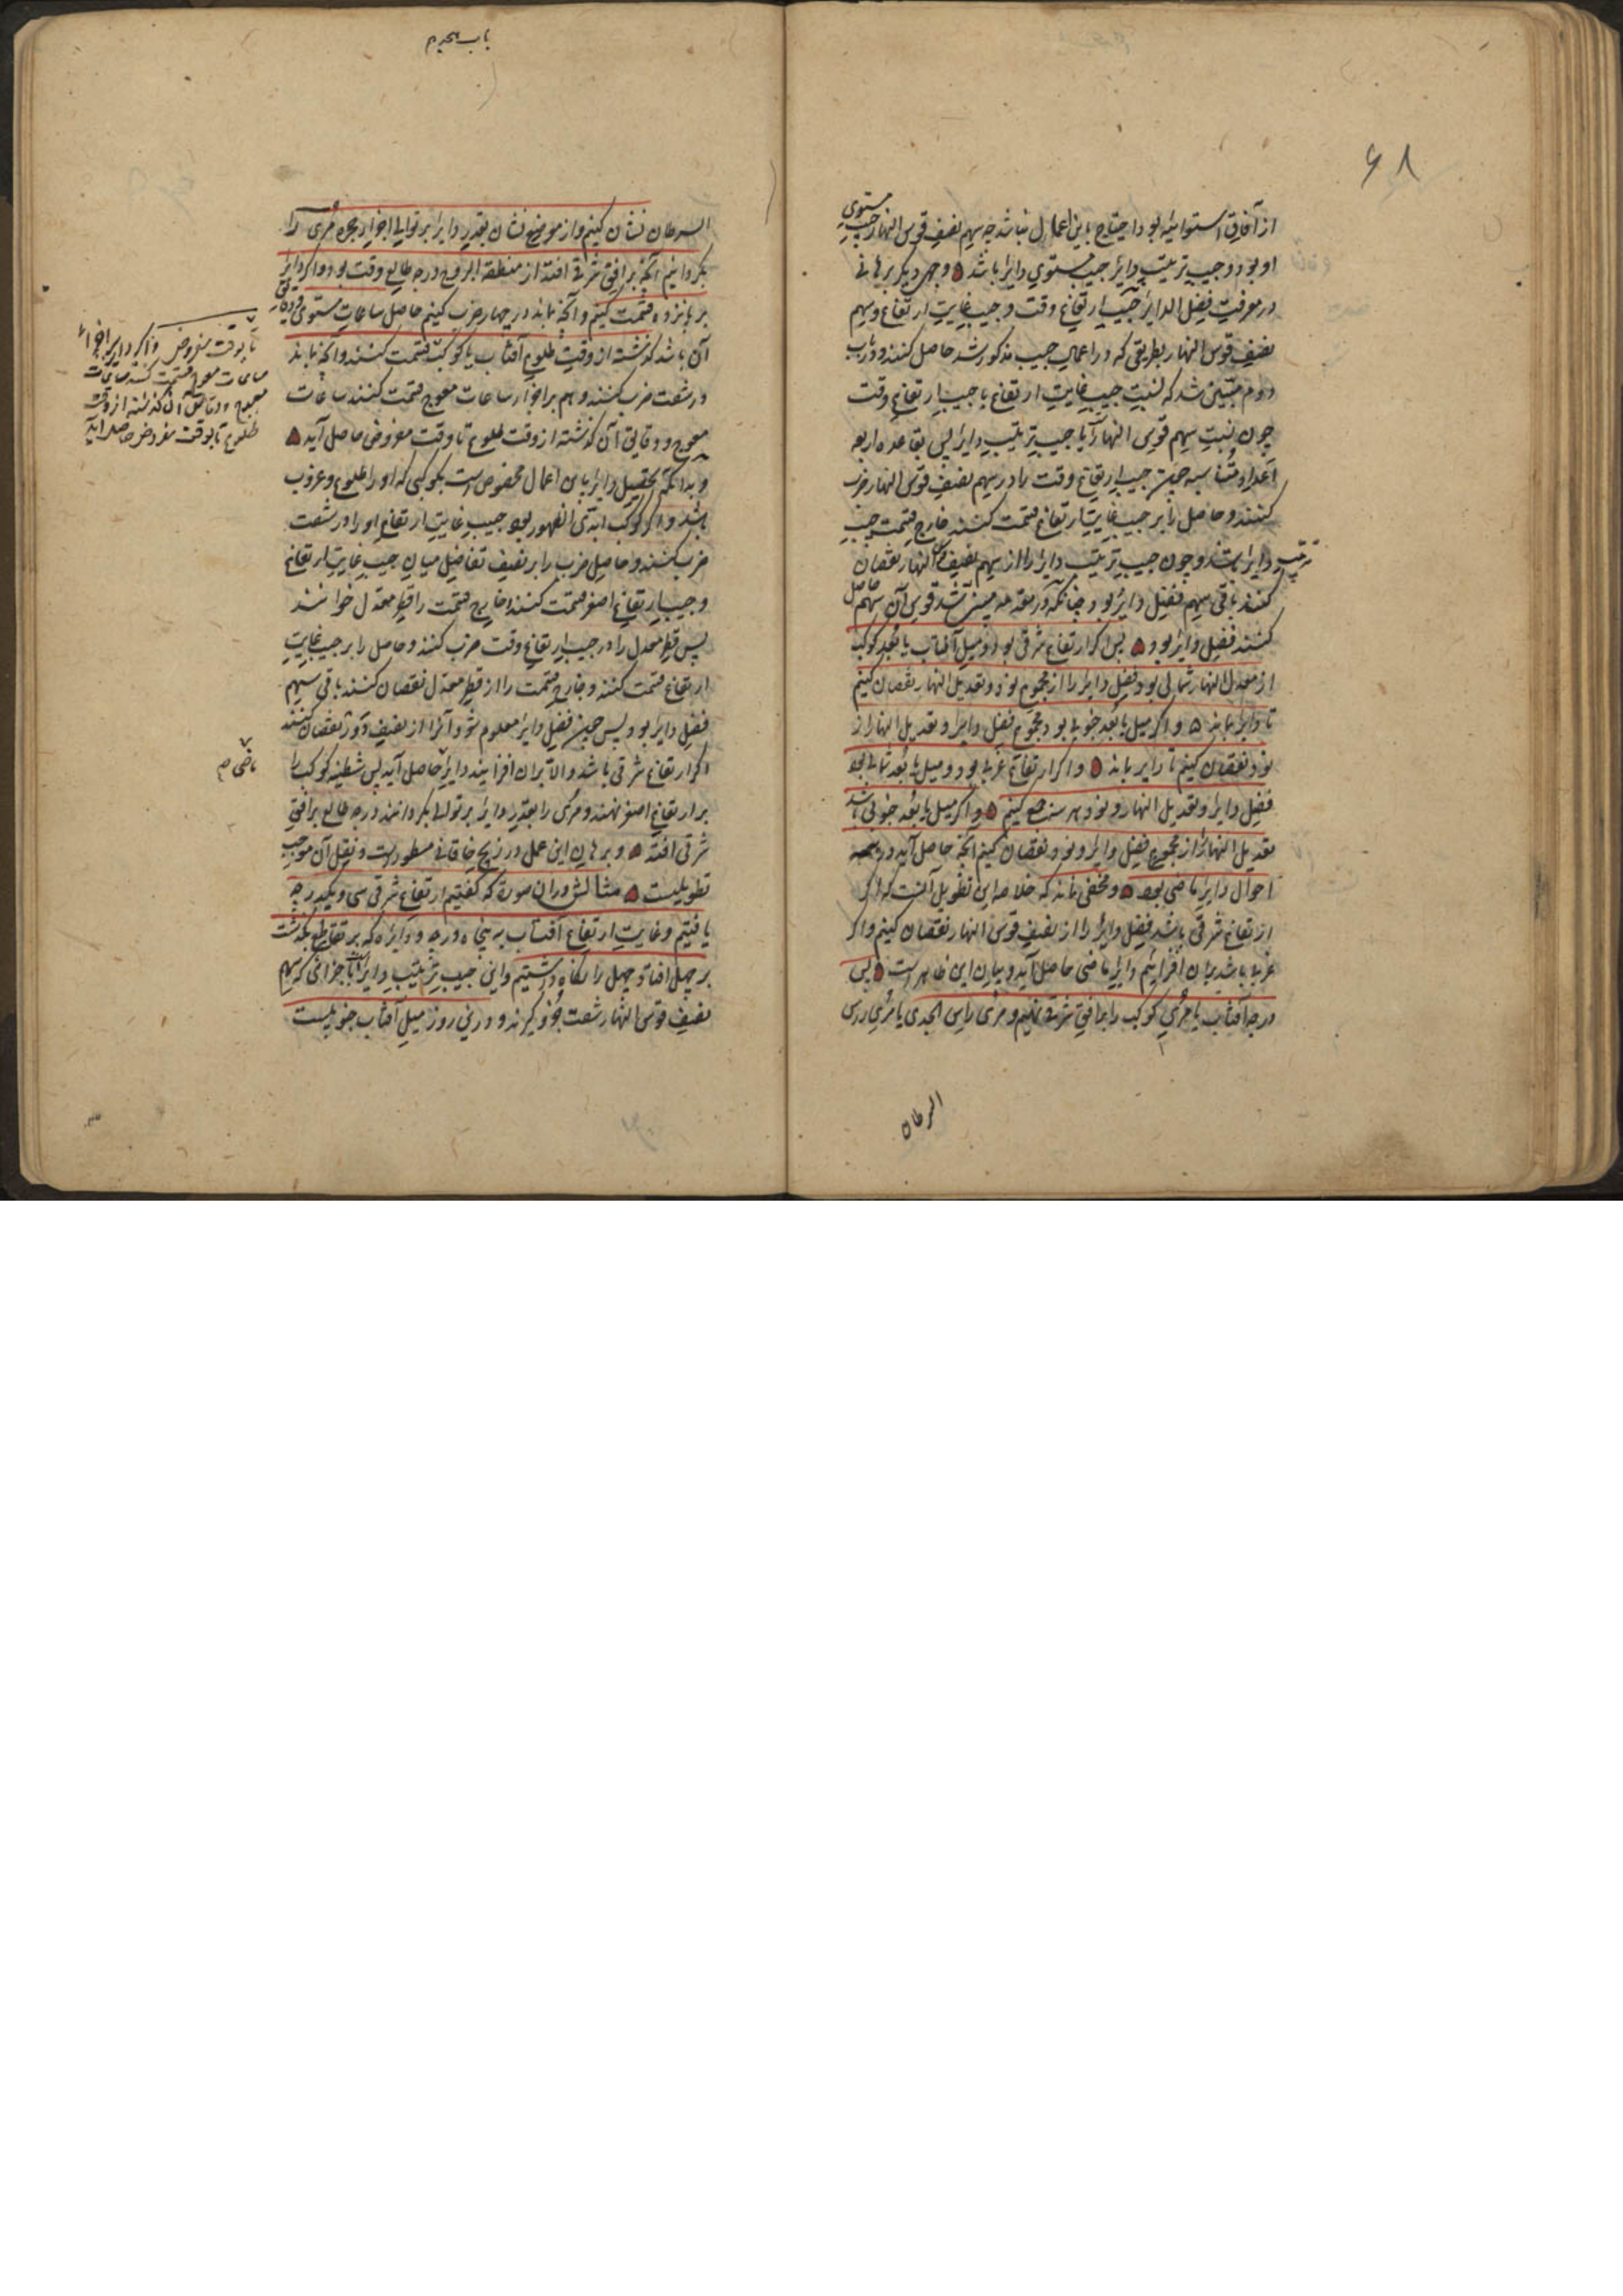 ۶۸
از آفاق استوائیه بود احتیاج باین اعمال نباشد چه سهم نصف قوس النهار جیب مستوی
او بود و جیب ترتیب دایر جیب مستوی دایر باشد و وجهی دیگر برهانی
در معرفت فضل الدایر جیب ارتفاع وقت و جیب غایت ارتفاع و سهم
نصف قوس النهار بطریقی که در اعمال جیب مذکور شد حاصل کنند و در باب
دوم مبیّن شد که نسبت جیب غایت ارتفاع با جیب ارتفاع وقت
چون نسبت سهم قوس النهار با جیب ترتیب دایر پس بقاعده اربعه
اعداد متناسبه چون جیب ارتفاع وقت را در سهم نصف قوس النهار ضرب
کنند و حاصل را بر جیب غایت ارتفاع قسمت کنند خارج قسمت جیب
ترتیب دایر باشد و چون جیب ترتیب دایر را از سهم نصف قوس النهار نقصان
کنند باقی سهم فضل دایر بود چنانکه در مقدمه مبین شد قوس آن سهم حاصل
کنند فضل دایر بود پس اگر ارتفاع شرقی بود و میل آفتاب یا بعد کوکب
از معدل النهار شمالی بود فضل دایر را از مجموع نود و تعدیل النهار نقصان کنیم
تا دایر بماند و اگر میل یا بعد جنوبی بود مجموع فضل دایر و تعدیل النهار از
نود نقصان کنیم تا دایر بماند و اگر ارتفاع غربی بود و میل یا بعد شمالی بود
فضل دایر و تعدیل النهار و نود هر سه جمع کنیم و اگر میل یا بعد جنوبی باشد
تعدیل النهار را از مجموع فضل دایر و نود نقصان کنیم آنچه حاصل آید در همه
احوال دایر ماضی بود و مخفی نماند که خلاصه این تطویل آنست که اگر
ارتفاع شرقی باشد فضل دایر را از نصف قوس النهار نقصان کنیم و اگر
غربی باشد بران افزاییم دایر ماضی حاصل آید و بیان این ظاهرست پس
درجه آفتاب یا مری کوکب را بر افق شرقی نهیم و مری راس الجدی یا مری راس
السرطان
باب هجدهم
السرطان نشان کنیم و از موضع نشان بقدر دایر بر توالی اجزاء حجره مری را
بگردانیم آنچه بر افق شرقی افتد از منطقة البروج درجه طالع وقت بود و اگر دایر
بر پانزده قسمت کنیم و آنچه بماند در چهار ضرب کنیم حاصل ساعات مستوی و دقایق
آن باشد گذشته از وقت طلوع آفتاب یا کوکب قسمت کنند و آنچه بماند
در شصت ضرب کنند و هم بر اجزاء ساعات معوج قسمت کنند ساعات
معوج و دقایق آن گذشته از وقت طلوع تا وقت مفروض حاصل آید
و بدانکه تحصیل دایر باین اعمال مخصوص است بکوکبی که او را طلوع و غروب
باشد و اگر کوکب ابدی الظهور بود جیب غایت ارتفاع او را در شصت
ضرب کنند و حاصل ضرب را بر نصف تفاضل میان جیب غایت ارتفاع
و جیب ارتفاع اصغر قسمت کنند خارج قسمت را قطر معدل خوانند
پس قطر معدل را در جیب ارتفاع وقت ضرب کنند و حاصل را بر جیب غایت
ارتفاع قسمت کنند و خارج قسمت را از قطر معدل نقصان کنند باقی سهم
فضل دایر بود پس چون فضل دایر معلوم شود آنرا از نصف دور نقصان کنند
اگر ارتفاع شرقی باشد والا بران افزایند دایر حاصل آید پس شظیه کوکب را
بر ارتفاع اصغر نهند و مری را بقدر دایر بر توالی بگردانند درجه طالع بر افق
شرقی افتد و برهان این عمل در زیج خاقانی مسطورست و نقل آن موجب
تطویلست مثالش در آن صورت که گفتیم ارتفاع شرقی سی و یکدرجه
یافتیم و غایت ارتفاع آفتاب پنجاه درجه و دایره که بر تقاطع بگذشت
بر چهل افتاد چهل را نگاه داشتیم و این جیب ترتیب دایر است باجزائی که سهم
نصف قوس النهار شصت جزو گیرند و درین روز میل آفتاب جنوبیست
تا بوقت مفروض و اگر دایر بر اجزاء
ساعات معوج قسمت کنند ساعات
معوج و دقایق آن گذشته از وقت
طلوع تا بوقت مفروض حاصل آید
ماضی م